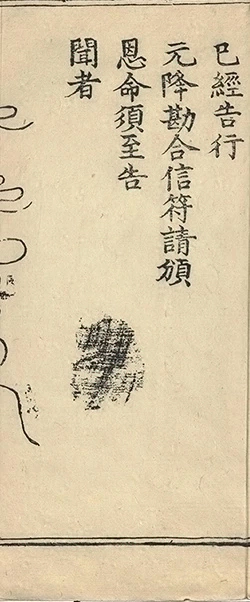 已經告行
元降勘合信符請頒
恩命須至告
聞者